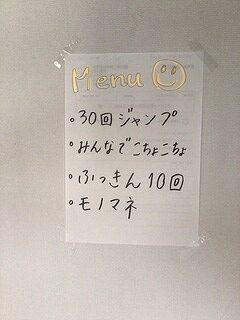 Menu
・30回ジャンプ
・みんなでこちょこちょ
・ふっきん10回
・モノマネ